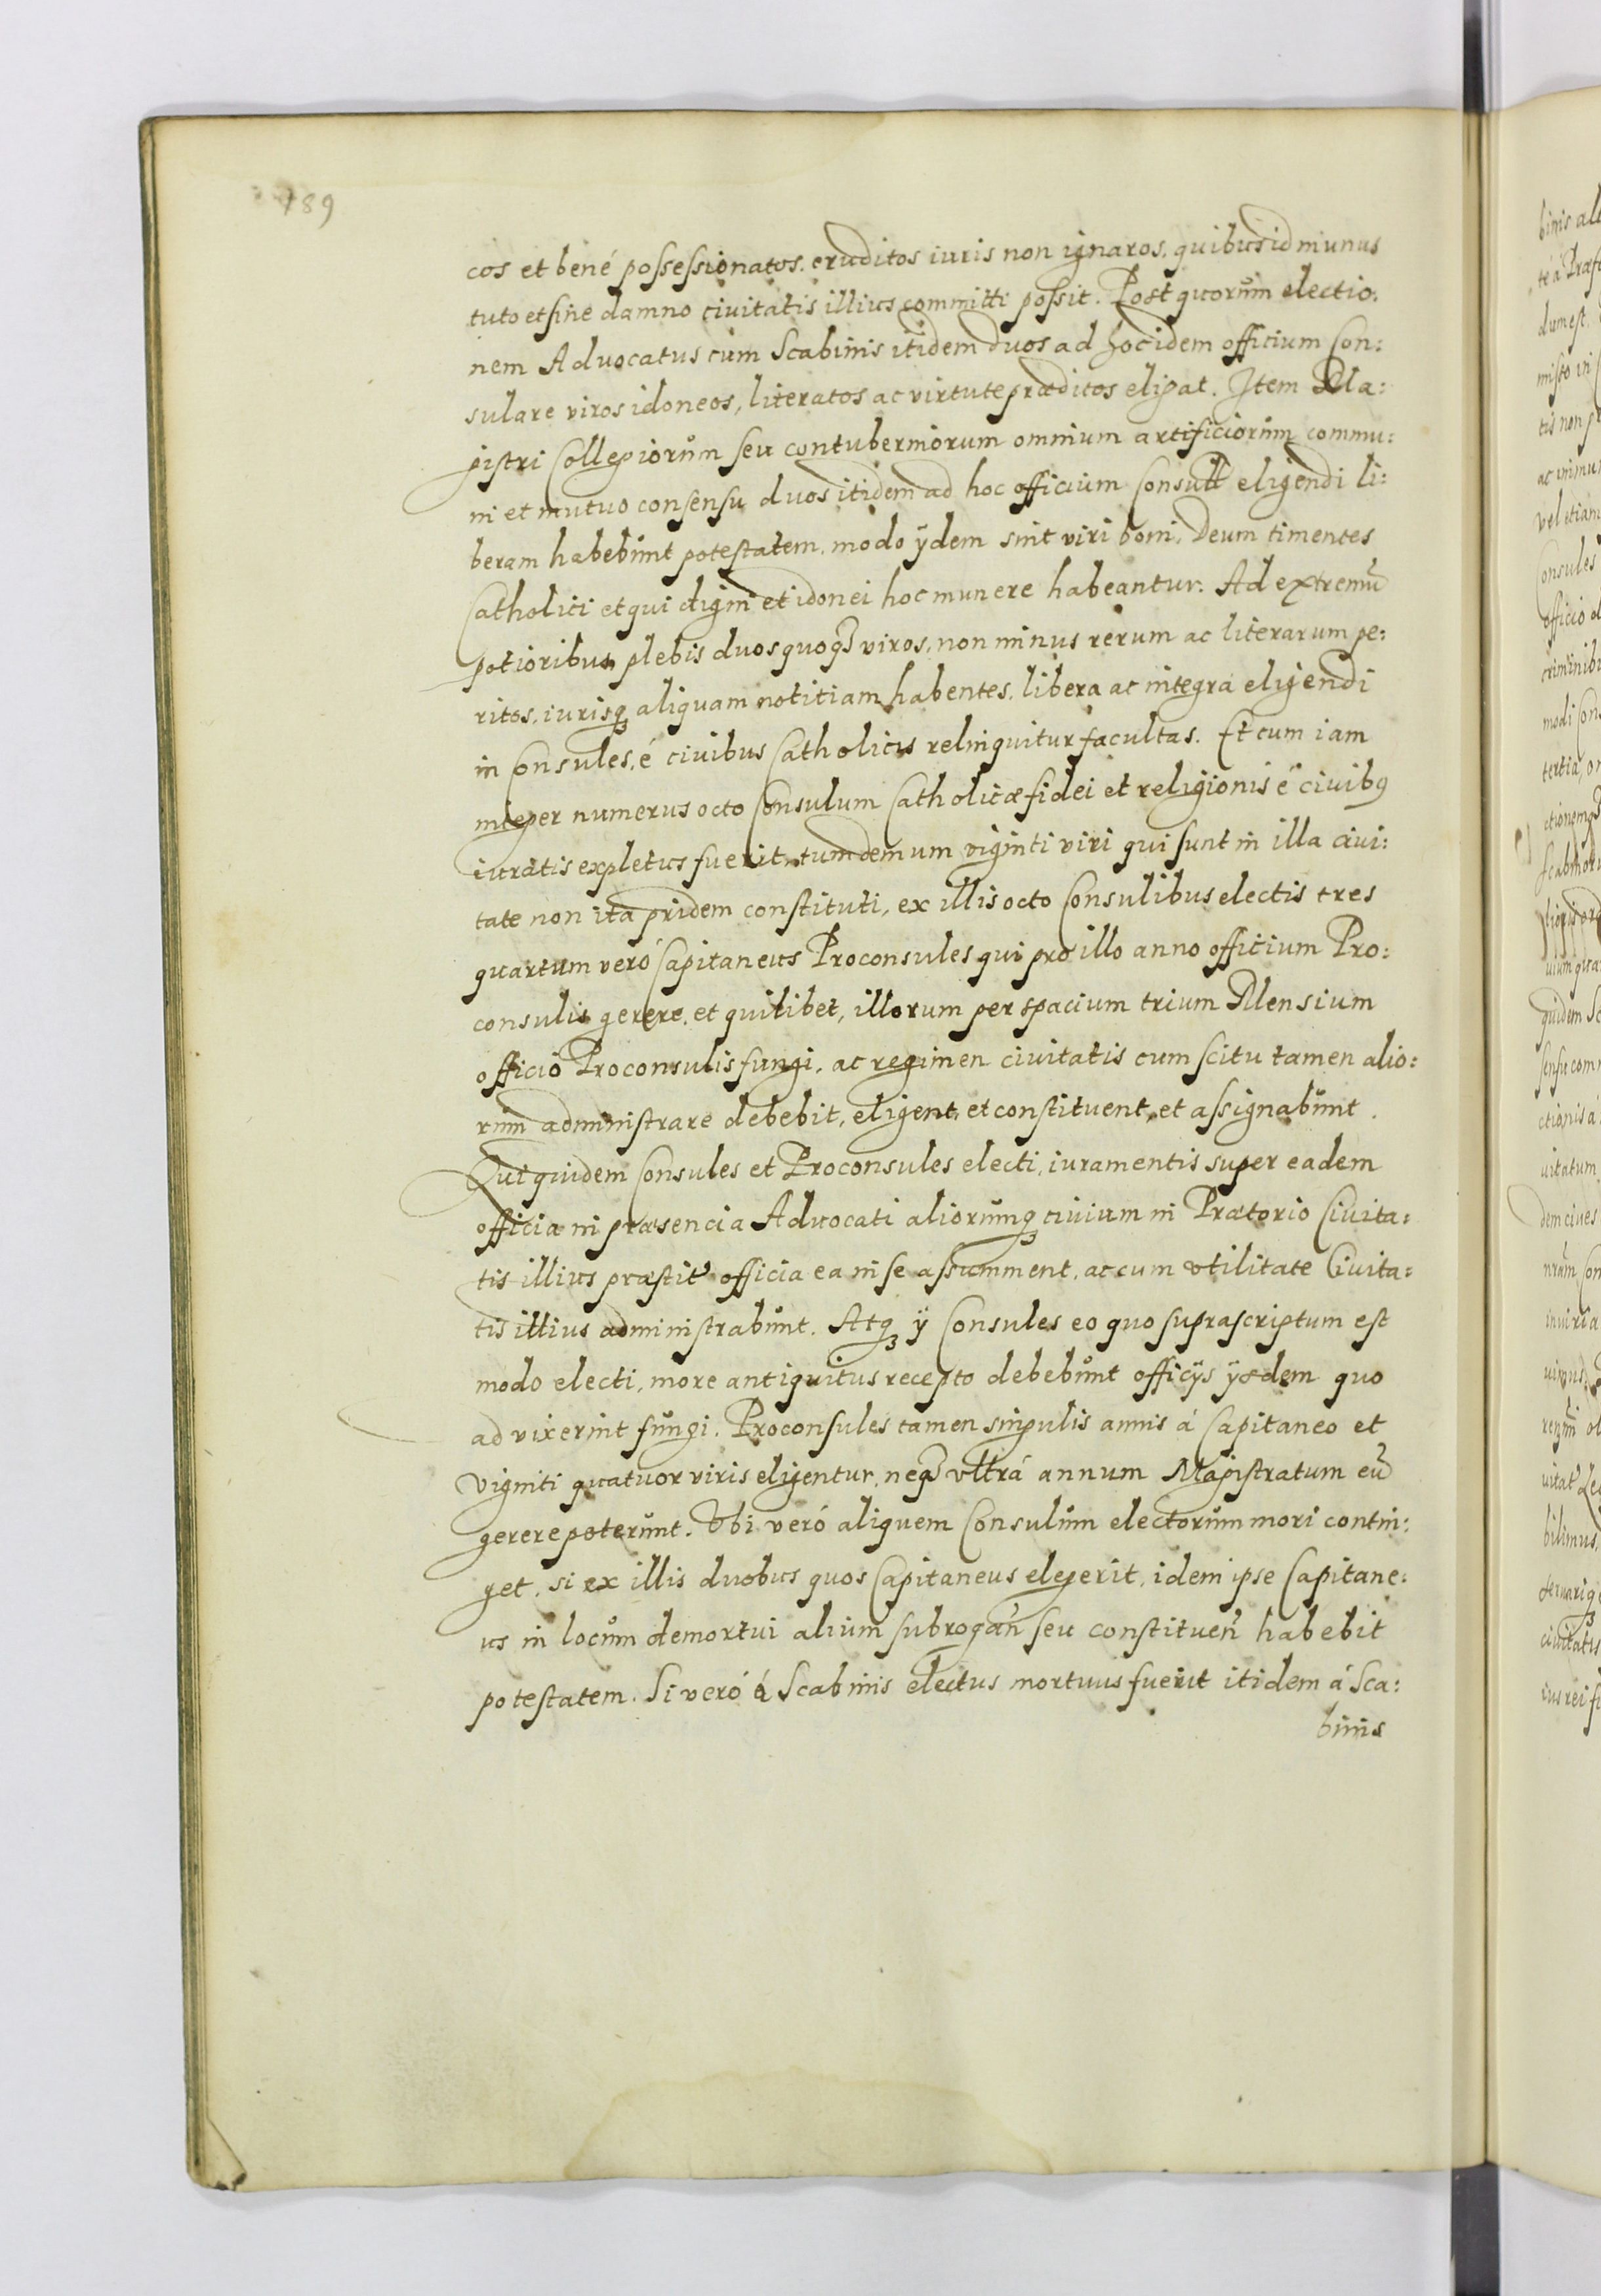 789
cos et bené possessionatos, eruditos iuris non ignaros, quibus id munus
tuto et sine damno ciuitatis illius committi possit. Post quorum electio:
nem Aduocatus cum Scabinis itidem duos ad hoc idem officium Con:
sulare viros idoneos, literatos ac virtute præditos eligat. Item Ma:
gistri Collegiorum seu contuberniorum omnium artificiorum commu:
ni et mutuo consensu duos itidem ad hoc officium Consult eligendi li:
beram habebunt potestatem, modo ÿdem sint viri boni, Deum timentes
Catholici et qui digni et idonei hoc munere habeantur. Ad extremū
potioribus plebis duos quoqȝ viros, non minus rerum ac literarum pe:
ritos, iurisqȝ aliquam notitiam habentes, libera ac integra eligendi
in Consules, é ciuibus Catholicis relinquitur facultas. Et cum iam
integer numerus octo Consulum Catholicæ fidei et religionis é ciuibꝰ
iuratis expletus fuerit, tum demum viginti viri qui sunt in illa ciui:
tate non ita pridem constituti, ex illis octo Consulibus electis tres
quartum veró Capitaneus Proconsules qui pro illo anno officium Pro:
consulis gerere, et quilibet, illorum per spacium trium Mensium
officio Proconsulis fungi, ac regimen ciuitatis cum scitu tamen alio:
rum administrare debebit, eligent, et constituent, et assignabunt.
Qui quidem Consules et Proconsules electi, iuramentis super eadem
officia in præsencia Aduocati aliorumqȝ ciuium in Prætorio Ciuita:
tis illius præstit̃ officia ea in se assumment, ac cum vtilitate Ciuita:
tis illius administrabunt. Atqȝ ÿ Consules eo quo suprascriptum est
modo electi, more antiquitus recepto debebunt officÿs ÿsdem quo
ad vixerint fungi. Proconsules tamen singulis annis á Capitaneo et
viginti quatuor viris eligentur, neqȝ vltrá annum Magistratum eū
gerere poterunt. Vbi veró aliquem Consulum electorum mori contin:
get, si ex illis duobus quos Capitaneus elegerit, idem ipse Capitane:
us in locum demortui alium subrogan̄ seu constituen̄ habebit
potestatem. Si veró á Scabinis electus mortuus fuerit itidem á Sca:
binis